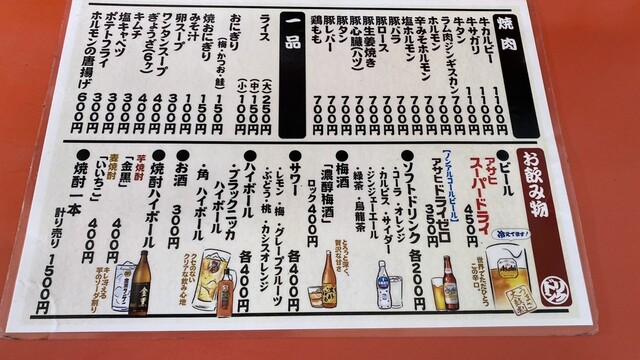 焼肉
牛カルビー 1100円
牛サガリ 1100円
牛タン 1100円
ラム肉(ジンギスカン) 700円
ホルモン 700円
辛みそホルモン 700円
塩ホルモン 700円
豚バラ 700円
豚ロース 700円
豚生姜焼き 700円
豚心臓(ハツ) 700円
豚タン 700円
豚レバー 700円
鶏もも 700円
一品
ライス (大)250円
(中)150円
(小)100円
おにぎり (梅・かつお・鮭) 150円
焼おにぎり 150円
みそ汁 100円
卵スープ 300円
ワンタンスープ 400円
ぎょうざ(6ヶ) 400円
キムチ 300円
塩キャベツ 300円
ポテトフライ 300円
ホルモンの唐揚げ 600円
お飲み物
ドリンク
●ビール
アサヒ
スーパードライ 450円
冷えてます!
世界でただひとつ
この辛口。
【ノンアルコールビール】
アサヒドライゼロ 350円
●ソフトドリンク 各200円
・コーラ・オレンジ
・カルピス・サイダー
・ジンジャーエール
・緑茶・烏龍茶
●梅酒
「濃醇梅酒」
ロック 400円
とろっと深く、
贅沢な甘さ
●サワー 各400円
・レモン・梅・グレープフルーツ
・ぶどう・桃・カシスオレンジ
●ハイボール 各400円
・ブラックニッカ
ハイボール
・角 ハイボール
クセのない
クリアな飲み心地
●お酒 300円
●焼酎ハイボール
芋焼酎
「金黒」 400円
麦焼酎
「いいちこ」 400円
キレ冴える
芋のソーダ割り
●焼酎一本 計り売り 1500円